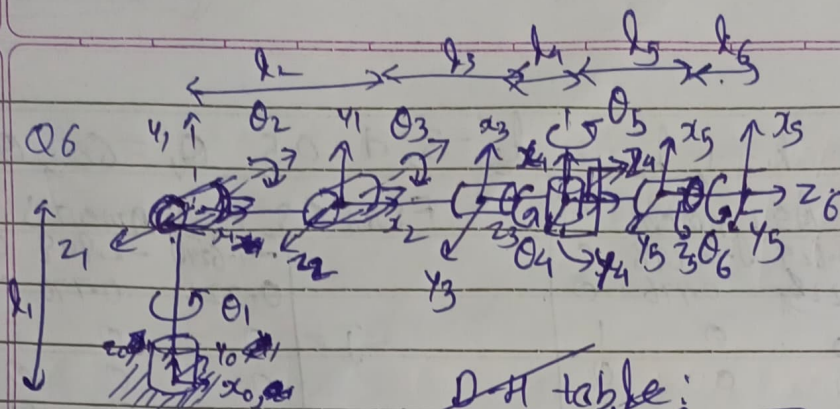 l2 l3 l4 l5 l6
Q6 y1 θ2 y1 θ3 x3 θ5 x5 x5
x4 z4
z1 x2 z3 z6
z2 y3 θ4 y4 y5 z5 θ6 y5
l1 θ1
y0
x0
D-H table: